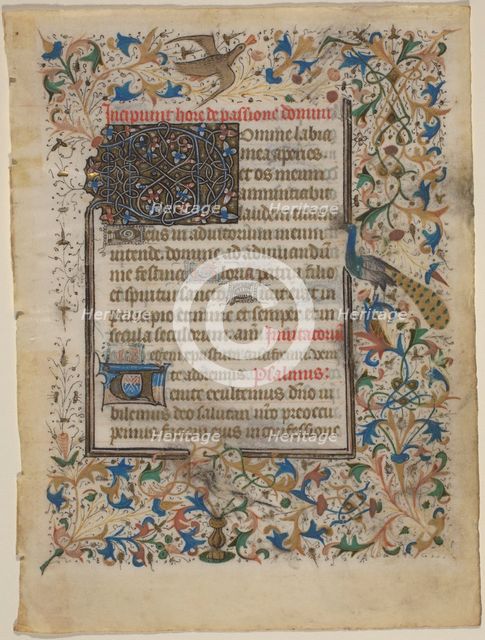 Incipiunt hore de passione domini
Domine labia
mea aperies
et os meum
annuntiabit
laudem
Deus in adiutorium meum in
tende domine ad adiuuandū
me festina Gloria patri filio
et spiritui sancto
principio et semper et in
secula seculorum am Inuitatoriū
te adoremus Psalmus
Venite exultemus dn̄o iu
bilemus deo salutari nr̄o preoccu
pemus faciem eius in confessione
Heritage
Heritage
Heritage
Heritage
Heritage
Heritage
Heritage
Heritage